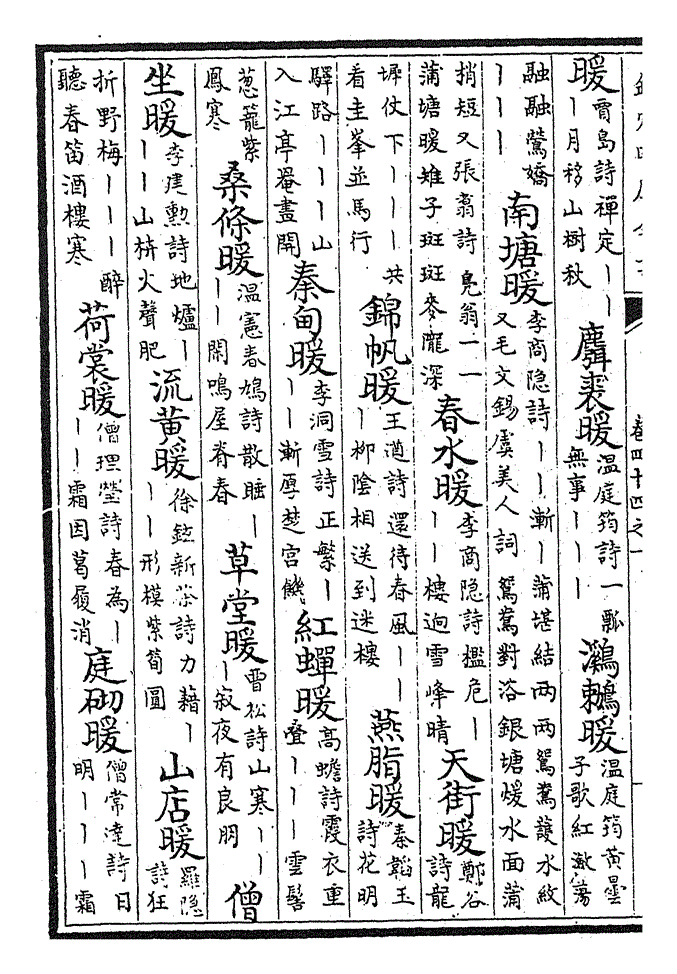 卷四十四之一
暖賈島詩禪定丨丨丨月移山樹秋 麛裘暖溫庭筠詩一瓢無事丨丨丨 鸂鶒暖溫庭筠黃曇子歌紅瀲蕩
融融鶯嬌丨丨丨 南塘暖李商隐詩丨丨漸丨蒲堪結兩兩鴛鴦護水紋又毛文錫虞美人詞鴛鴦對浴銀塘煖水面蒲
捎短又張翥詩鳧翁一一蒲塘暖雉子斑斑麥隴深 春水暖李商隐詩檻危丨丨丨樓迥雪峰晴 天街暖鄭谷詩龍
墀仗下丨丨丨共看圭峯並馬行 錦帆暖王遒詩還待春風丨丨丨柳陰相送到迷樓 燕脂暖秦韜玉詩花明
驛路丨丨丨山入江亭罨畫開 秦甸暖李洞雪詩正繁丨丨丨漸厚楚宮饑 紅蟬暖高蟾詩霞衣重疊丨丨丨雲髻
葱籠紫鳳寒 桑條暖溫憲春鳩詩散睡丨丨丨閑鳴屋脊春 草堂暖曹松詩山寒丨丨丨寂夜有良朋 僧
坐暖李建勲詩地爐丨丨丨山枿火聲肥 流黃暖徐鉉新茶詩力藉丨丨丨形模紫筍圓 山店暖羅隐詩狂
折野梅丨丨丨醉聽春笛酒樓寒 荷裳暖僧理瑩詩春為丨丨丨霜因葛屨消 庭砌暖僧常達詩日明丨丨丨霜